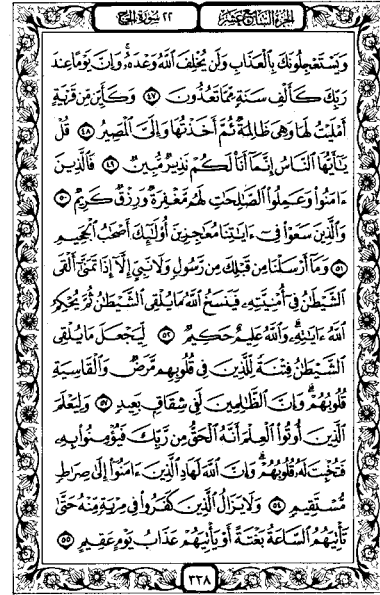 الجزء السابع عشر
٢٢ سورة الحج
وَيَسْتَعْجِلُونَكَ بِالْعَذَابِ وَلَن يُخْلِفَ اللَّهُ وَعْدَهُ ۚ وَإِنَّ يَوْمًا عِندَ
رَبِّكَ كَأَلْفِ سَنَةٍ مِّمَّا تَعُدُّونَ ٤٧ وَكَأَيِّن مِّن قَرْيَةٍ
أَمْلَيْتُ لَهَا وَهِيَ ظَالِمَةٌ ثُمَّ أَخَذْتُهَا وَإِلَيَّ الْمَصِيرُ ٤٨ قُلْ
يَٰأَيُّهَا النَّاسُ إِنَّمَا أَنَا۠ لَكُمْ نَذِيرٌ مُّبِينٌ ٤٩ فَالَّذِينَ
ءَامَنُوا وَعَمِلُوا الصَّٰلِحَٰتِ لَهُم مَّغْفِرَةٌ وَرِزْقٌ كَرِيمٌ ٥٠
وَالَّذِينَ سَعَوْا فِي ءَايَٰتِنَا مُعَٰجِزِينَ أُولَٰئِكَ أَصْحَٰبُ الْجَحِيمِ
٥١ وَمَا أَرْسَلْنَا مِن قَبْلِكَ مِن رَّسُولٍ وَلَا نَبِيٍّ إِلَّا إِذَا تَمَنَّىٰ أَلْقَى
الشَّيْطَٰنُ فِي أُمْنِيَّتِهِ فَيَنسَخُ اللَّهُ مَا يُلْقِي الشَّيْطَٰنُ ثُمَّ يُحْكِمُ
اللَّهُ ءَايَٰتِهِ ۗ وَاللَّهُ عَلِيمٌ حَكِيمٌ ٥٢ لِّيَجْعَلَ مَا يُلْقِي
الشَّيْطَٰنُ فِتْنَةً لِّلَّذِينَ فِي قُلُوبِهِم مَّرَضٌ وَالْقَاسِيَةِ
قُلُوبُهُمْ ۗ وَإِنَّ الظَّٰلِمِينَ لَفِي شِقَاقٍ بَعِيدٍ ٥٣ وَلِيَعْلَمَ
الَّذِينَ أُوتُوا الْعِلْمَ أَنَّهُ الْحَقُّ مِن رَّبِّكَ فَيُؤْمِنُوا بِهِ
فَتُخْبِتَ لَهُ قُلُوبُهُمْ ۗ وَإِنَّ اللَّهَ لَهَادِ الَّذِينَ ءَامَنُوا إِلَىٰ صِرَٰطٍ
مُّسْتَقِيمٍ ٥٤ وَلَا يَزَالُ الَّذِينَ كَفَرُوا فِي مِرْيَةٍ مِّنْهُ حَتَّىٰ
تَأْتِيَهُمُ السَّاعَةُ بَغْتَةً أَوْ يَأْتِيَهُمْ عَذَابُ يَوْمٍ عَقِيمٍ ٥٥
٣٣٨